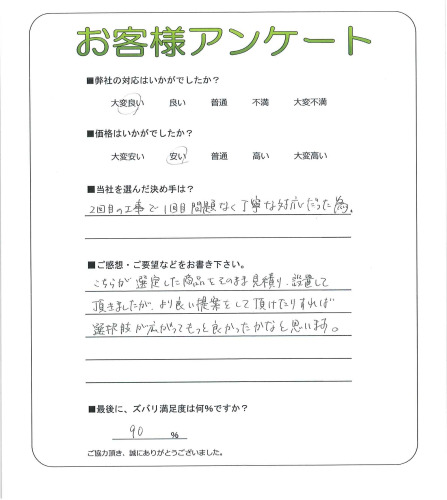 お客様アンケート
■弊社の対応はいかがでしたか?
大変良い 良い 普通 不満 大変不満
■価格はいかがでしたか?
大変安い 安い 普通 高い 大変高い
■当社を選んだ決め手は?
2回目の工事で1回目問題なく丁寧な対応だった為。
■ご感想・ご要望などをお書き下さい。
こちらが選定した商品をそのまま見積り、設置して
頂きましたが、より良い提案をして頂けたりすれば
選択肢が広がってもっと良かったかなと思います。
■最後に、ズバリ満足度は何%ですか?
90 %
ご協力頂き、誠にありがとうございました。